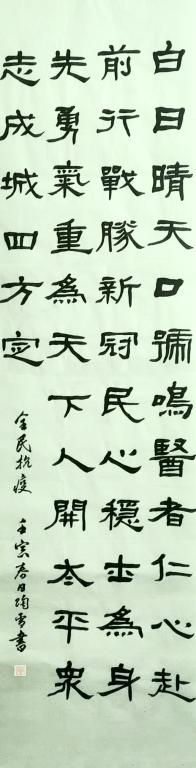 白日晴天口號鳴醫者仁心赴
前行戰勝新冠民心穩出為身
先勇氣重為天下人開太平衆
志成城四方定
全民抗疫 壬寅春日陶雪書